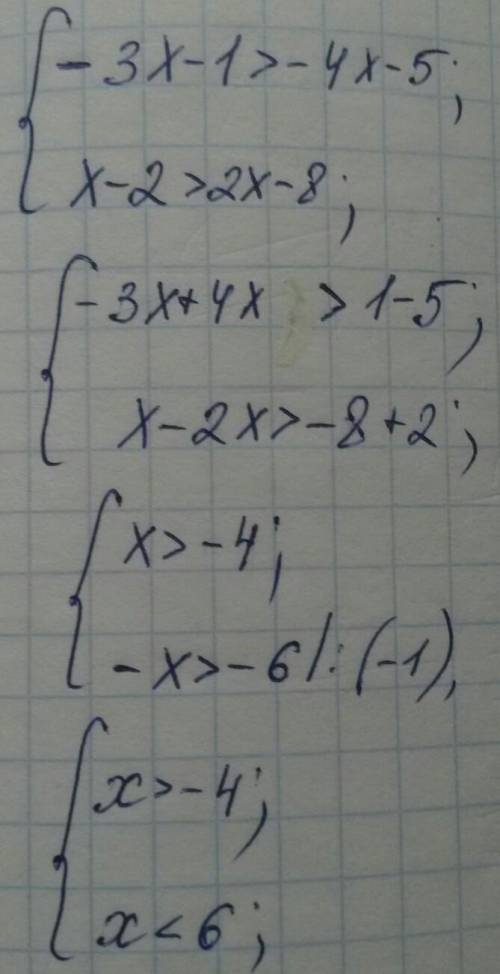 - 3x-1>-4x-5;
x-2>2x-8;
-3x+4x > 1-5;
x-2x>-8+2;
x>-4;
-x>-6/:(-1),
x>-4;
x<6;